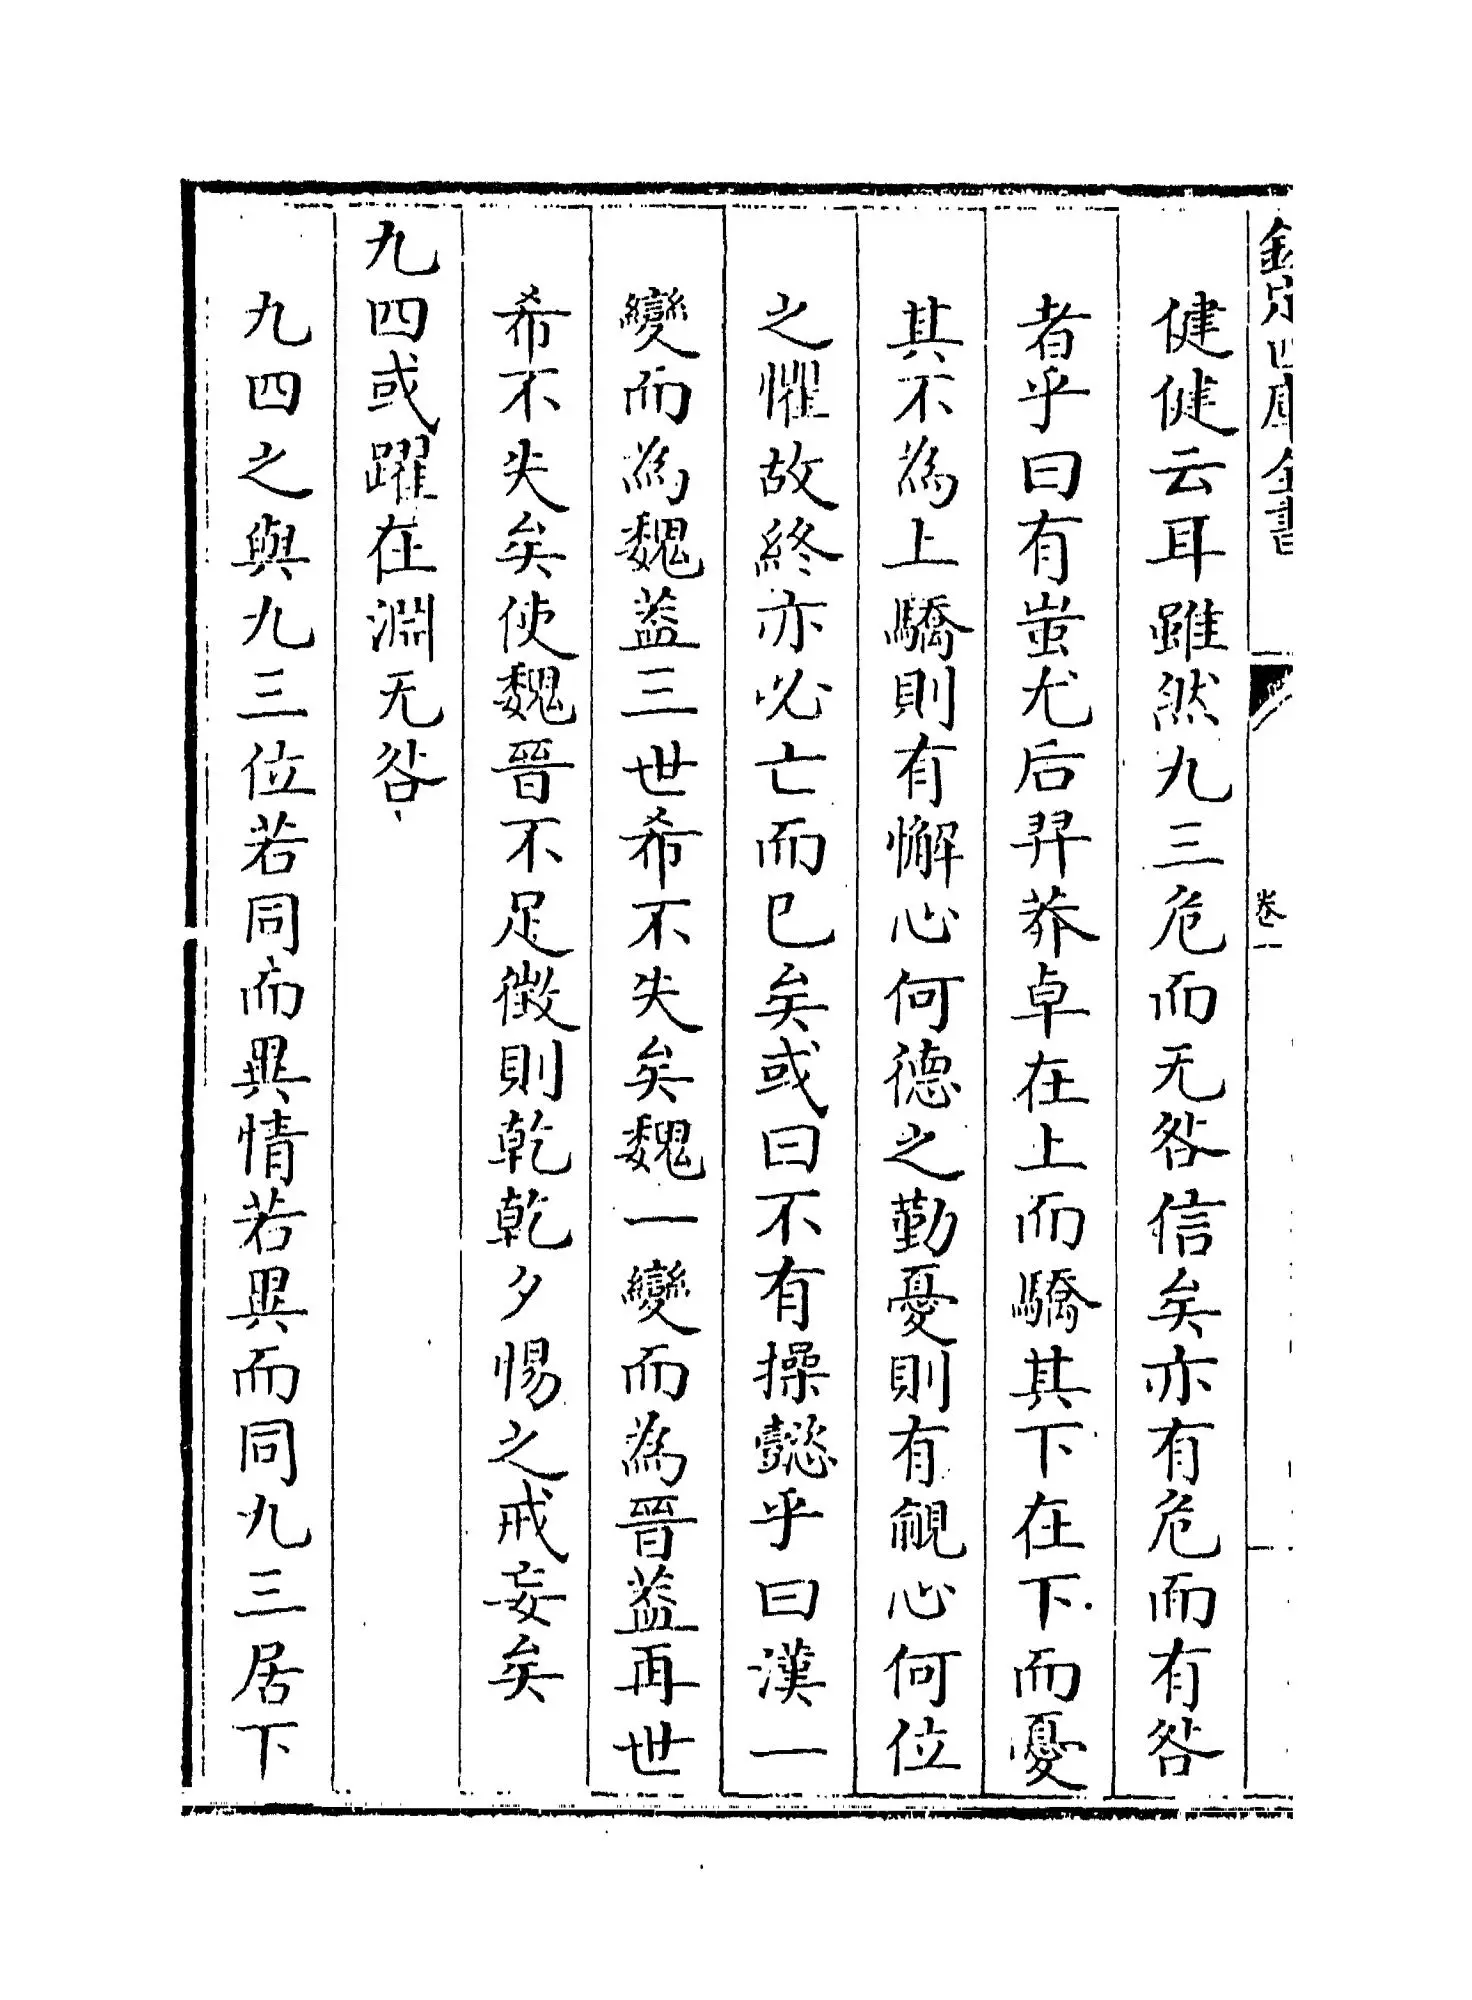 欽定四庫全書
卷一
健健云耳雖然九三危而无咎信矣亦有危而有咎
者乎曰有蚩尤后羿莽卓在上而驕其下在下而憂
其不為上驕則有懈心何德之勤憂則有覦心何位
之懼故終亦必亡而已矣或曰不有操懿乎曰漢一
變而為魏葢三世希不失矣魏一變而為晉葢再世
希不失矣使魏晉不足徵則乾乾夕惕之戒妄矣
九四或躍在淵无咎
九四之與九三位若同而異情若異而同九三居下